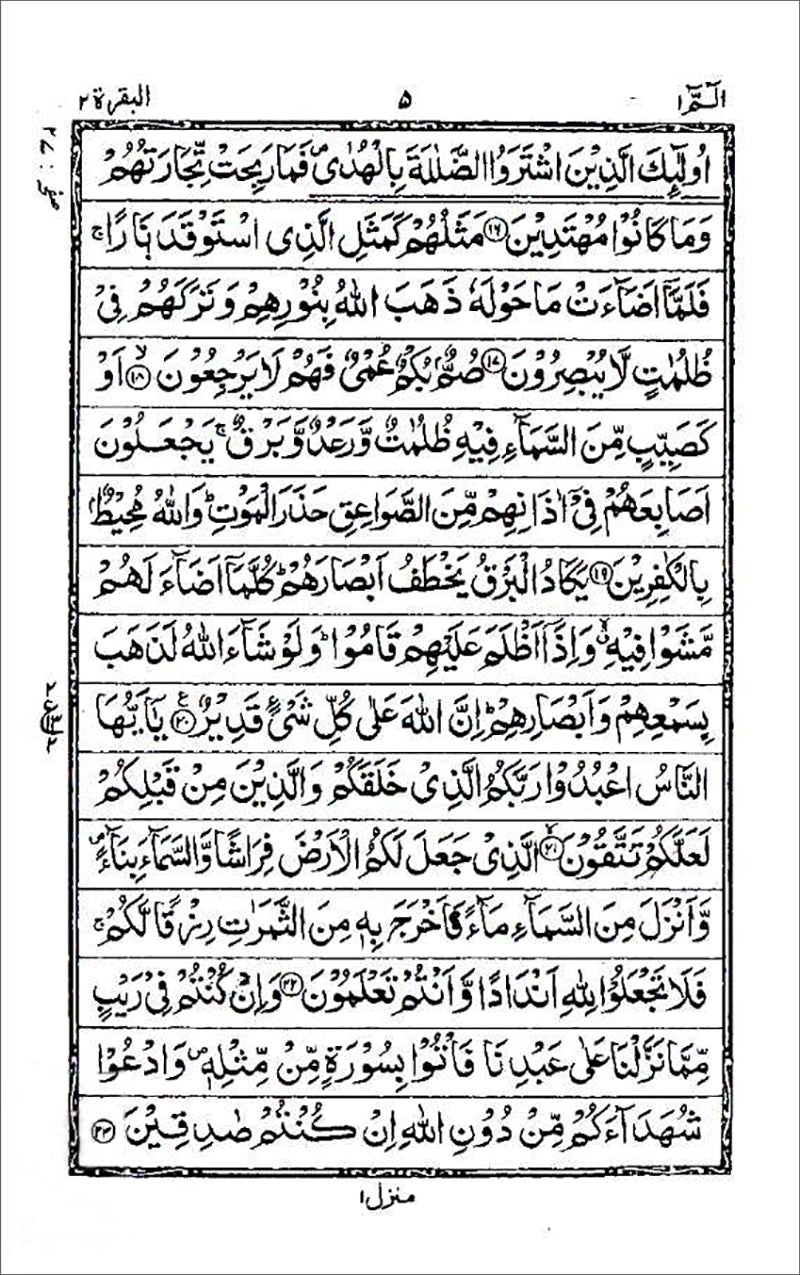 الٓمّٓ ١ ٥ البقرة ٢
اُولٰٓئِكَ الَّذِيْنَ اشْتَرَوُا الضَّلٰلَةَ بِالْهُدٰى ۪ فَمَا رَبِحَتْ تِّجَارَتُهُمْ
وَمَا كَانُوْا مُهْتَدِيْنَ ﴿١٦﴾ مَثَلُهُمْ كَمَثَلِ الَّذِى اسْتَوْقَدَ نَارًا ۚ
فَلَمَّآ اَضَآءَتْ مَا حَوْلَهٗ ذَهَبَ اللّٰهُ بِنُوْرِهِمْ وَتَرَكَهُمْ فِىْ
ظُلُمٰتٍ لَّا يُبْصِرُوْنَ ﴿١٧﴾ صُمٌّۢ بُكْمٌ عُمْىٌ فَهُمْ لَا يَرْجِعُوْنَ ۙ﴿١٨﴾ اَوْ
كَصَيِّبٍ مِّنَ السَّمَآءِ فِيْهِ ظُلُمٰتٌ وَّرَعْدٌ وَّبَرْقٌ ۚ يَجْعَلُوْنَ
اَصَابِعَهُمْ فِىْٓ اٰذَانِهِمْ مِّنَ الصَّوَاعِقِ حَذَرَ الْمَوْتِ ؕ وَاللّٰهُ مُحِيْطٌۢ
بِالْكٰفِرِيْنَ ﴿١٩﴾ يَكَادُ الْبَرْقُ يَخْطَفُ اَبْصَارَهُمْ ؕ كُلَّمَآ اَضَآءَ لَهُمْ
مَّشَوْا فِيْهِ ۙ وَاِذَآ اَظْلَمَ عَلَيْهِمْ قَامُوْا ؕ وَلَوْ شَآءَ اللّٰهُ لَذَهَبَ
بِسَمْعِهِمْ وَاَبْصَارِهِمْ ؕ اِنَّ اللّٰهَ عَلٰى كُلِّ شَىْءٍ قَدِيْرٌ ﴿٢٠﴾ۧ يٰٓاَيُّهَا
النَّاسُ اعْبُدُوْا رَبَّكُمُ الَّذِىْ خَلَقَكُمْ وَالَّذِيْنَ مِنْ قَبْلِكُمْ
لَعَلَّكُمْ تَتَّقُوْنَ ۙ﴿٢١﴾ الَّذِىْ جَعَلَ لَكُمُ الْاَرْضَ فِرَاشًا وَّالسَّمَآءَ بِنَآءً ۪
وَّاَنْزَلَ مِنَ السَّمَآءِ مَآءً فَاَخْرَجَ بِهٖ مِنَ الثَّمَرٰتِ رِزْقًا لَّكُمْ ۚ
فَلَا تَجْعَلُوْا لِلّٰهِ اَنْدَادًا وَّاَنْتُمْ تَعْلَمُوْنَ ﴿٢٢﴾ وَاِنْ كُنْتُمْ فِىْ رَيْبٍ
مِّمَّا نَزَّلْنَا عَلٰى عَبْدِنَا فَاْتُوْا بِسُوْرَةٍ مِّنْ مِّثْلِهٖ ۪ وَادْعُوْا
شُهَدَآءَكُمْ مِّنْ دُوْنِ اللّٰهِ اِنْ كُنْتُمْ صٰدِقِيْنَ ﴿٢٣﴾
منزل ١